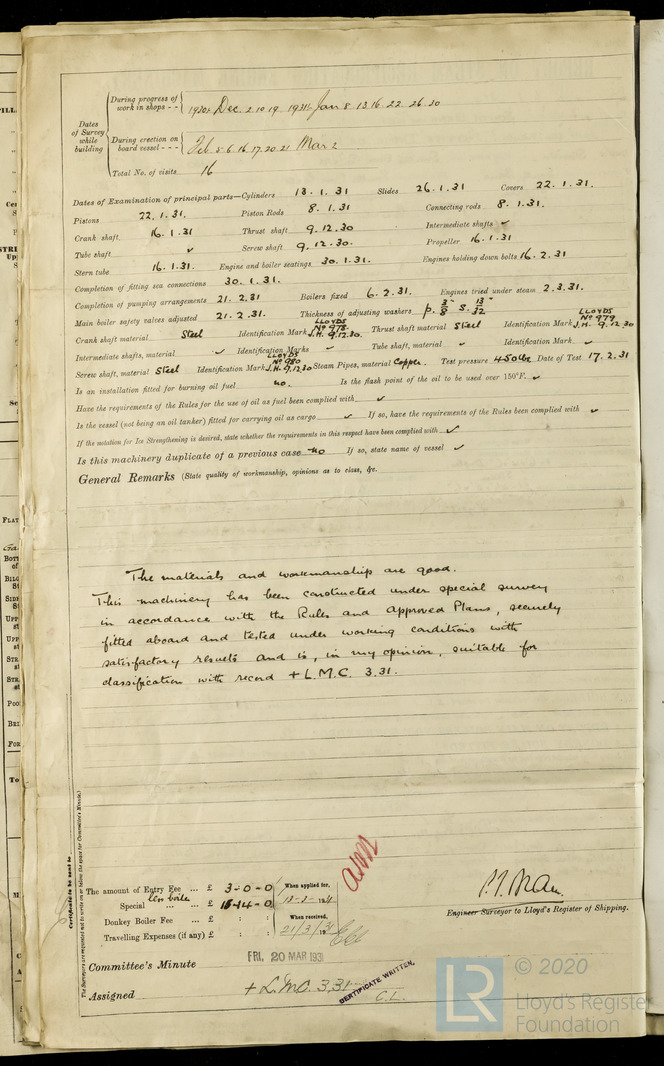 During progress of work in shops - - 1930:- Dec. 2. 10. 19. 1931:- Jan 8. 13. 16. 22. 26. 30
Dates of Survey while building
During erection on board vessel - - - Feb. 8. 6. 16. 17. 20. 21 Mar 2
Total No. of visits 16
Dates of Examination of principal parts—Cylinders 13. 1. 31 Slides 26. 1. 31 Covers 22. 1. 31.
Pistons 22. 1. 31. Piston Rods 8. 1. 31 Connecting rods 8. 1. 31.
Crank shaft 16. 1. 31 Thrust shaft 9. 12. 30 Intermediate shafts ✓
Tube shaft ✓ Screw shaft 9. 12. 30. Propeller 16. 1. 31
Stern tube 16. 1. 31. Engine and boiler seatings 30. 1. 31. Engines holding down bolts 16. 2. 31
Completion of fitting sea connections 30. 1. 31.
Completion of pumping arrangements 21. 2. 31 Boilers fixed 6. 2. 31. Engines tried under steam 2. 3. 31.
Main boiler safety valves adjusted 21. 2. 31. Thickness of adjusting washers P. 3/8" S. 13/32"
Crank shaft material Steel Identification Mark LLOYDS No 978. J.H. 9.12.30. Thrust shaft material Steel Identification Mark LLOYDS No 979 J.H. 9.12.30
Intermediate shafts, material ✓ Identification Marks ✓ Tube shaft, material ✓ Identification Mark ✓
Screw shaft, material Steel Identification Mark LLOYDS No 980 J.H. 9.12.30 Steam Pipes, material Copper. Test pressure 450 lbs Date of Test 17. 2. 31
Is an installation fitted for burning oil fuel no. Is the flash point of the oil to be used over 150°F. ✓
Have the requirements of the Rules for the use of oil as fuel been complied with ✓
Is the vessel (not being an oil tanker) fitted for carrying oil as cargo ✓ If so, have the requirements of the Rules been complied with ✓
If the notation for Ice Strengthening is desired, state whether the requirements in this respect have been complied with ✓
Is this machinery duplicate of a previous case no If so, state name of vessel ✓
General Remarks (State quality of workmanship, opinions as to class, &c.
The materials and workmanship are good.
This machinery has been constructed under special survey
in accordance with the Rules and approved Plans, securely
fitted aboard and tested under working conditions with
satisfactory results and is, in my opinion, suitable for
classification with record + L.M.C. 3.31.
Certificate to be send to
(The Surveyors are requested not to write on or below the space for Committee's Minute.)
The amount of Entry Fee ... £ 3 - 0 - 0 When applied for,
Special less boiler ... £ 14 - 0
Donkey Boiler Fee ... £ : : When received,
Travelling Expenses (if any) £ : : 21/3/31
Engineer Surveyor to Lloyd's Register of Shipping.
Committee's Minute FRI. 20 MAR 1931
Assigned + L.M.C. 3.31
CERTIFICATE WRITTEN.
C.L.
LR © 2020
Lloyd's Register
Foundation